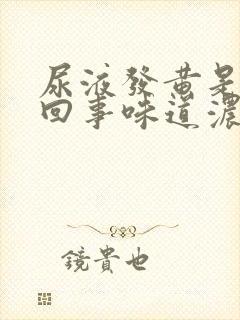 尿液發黃是
回事味道濃
鏡貴也